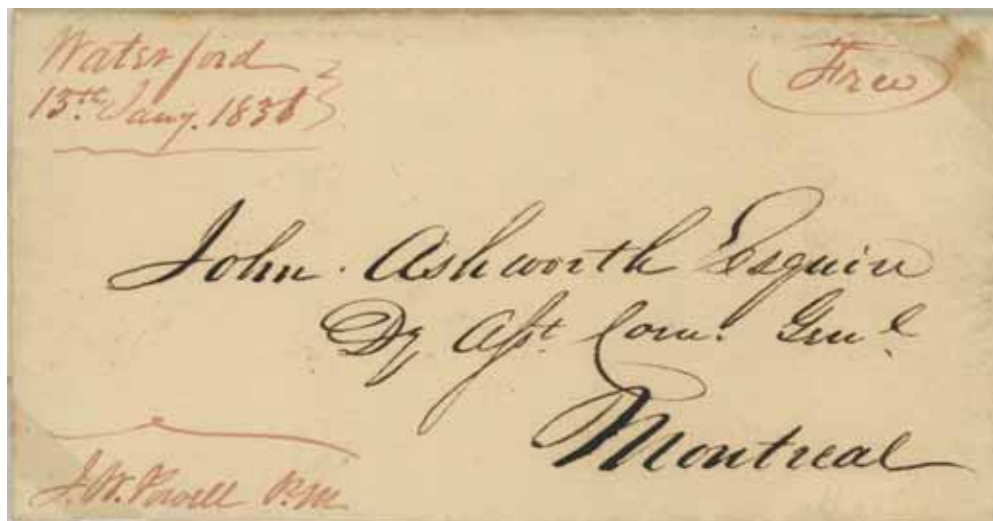 Waterford
13th Jany. 1836
Free
John Ashworth Esquire
Dy Asst. Com. Genl.
Montreal
J.W. Powell P.M